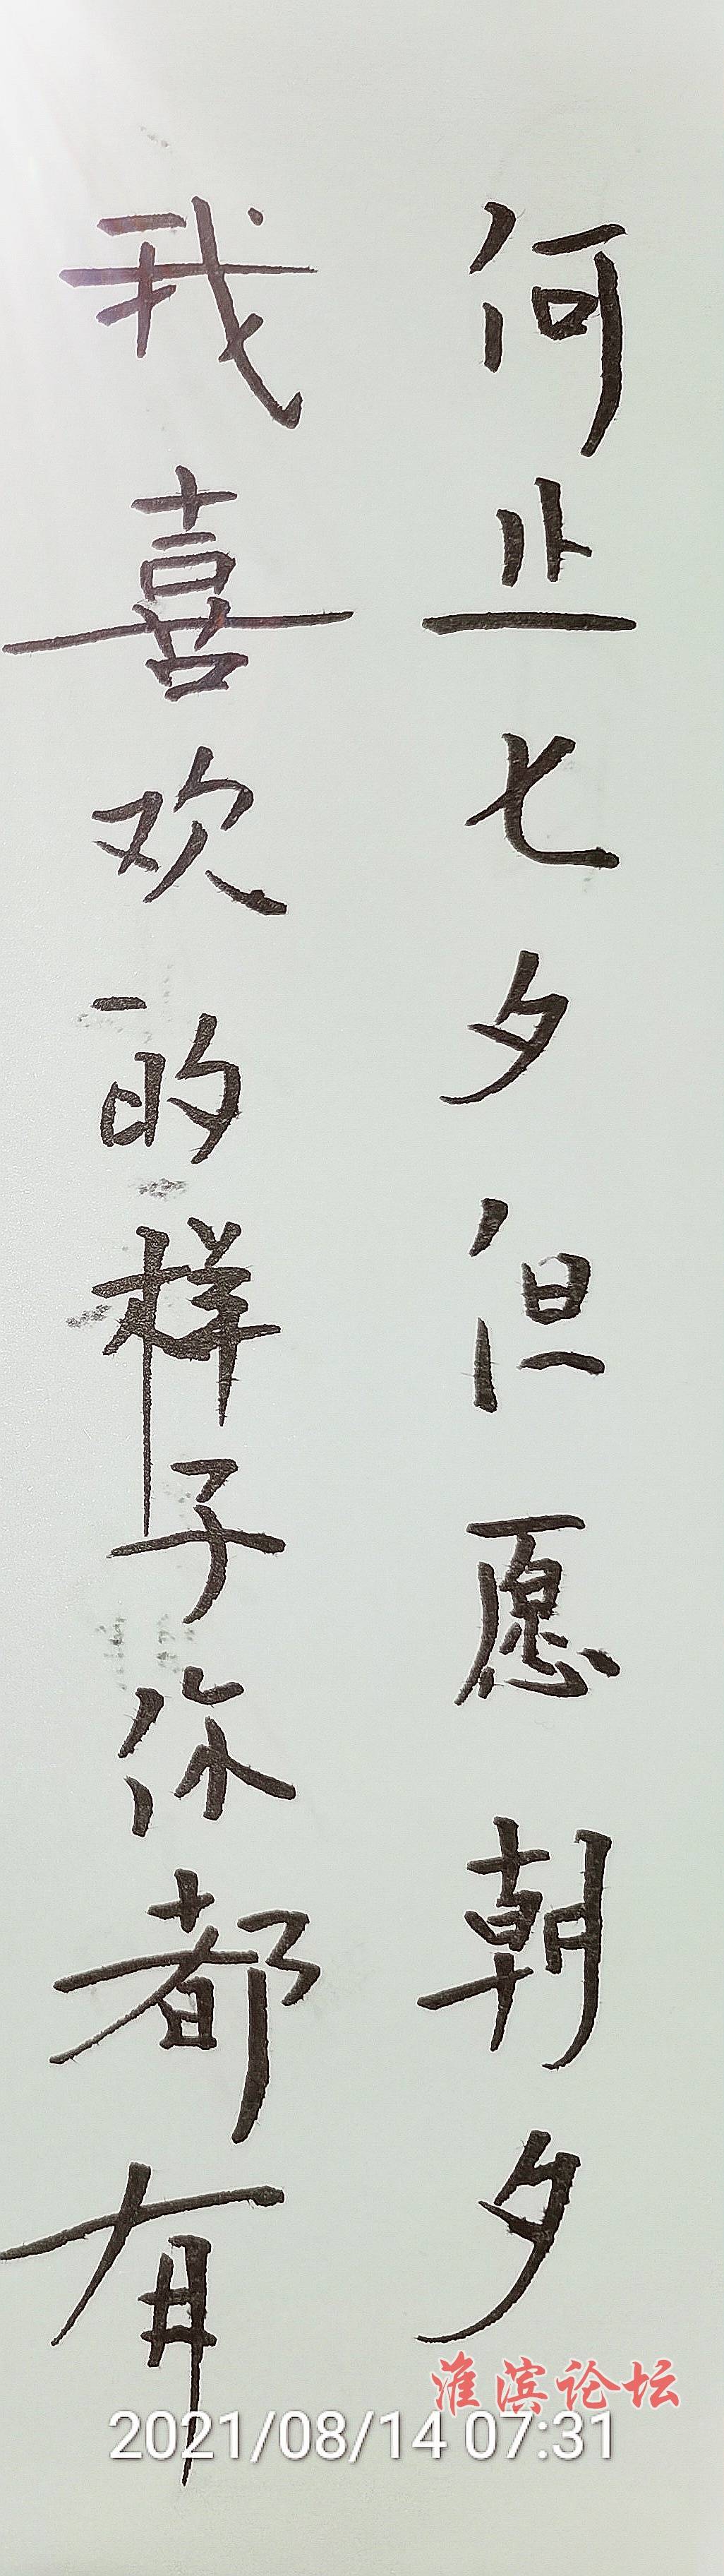 何止七夕但愿朝夕
我喜欢的样子你都有
淮滨论坛
2021/08/14 07:31